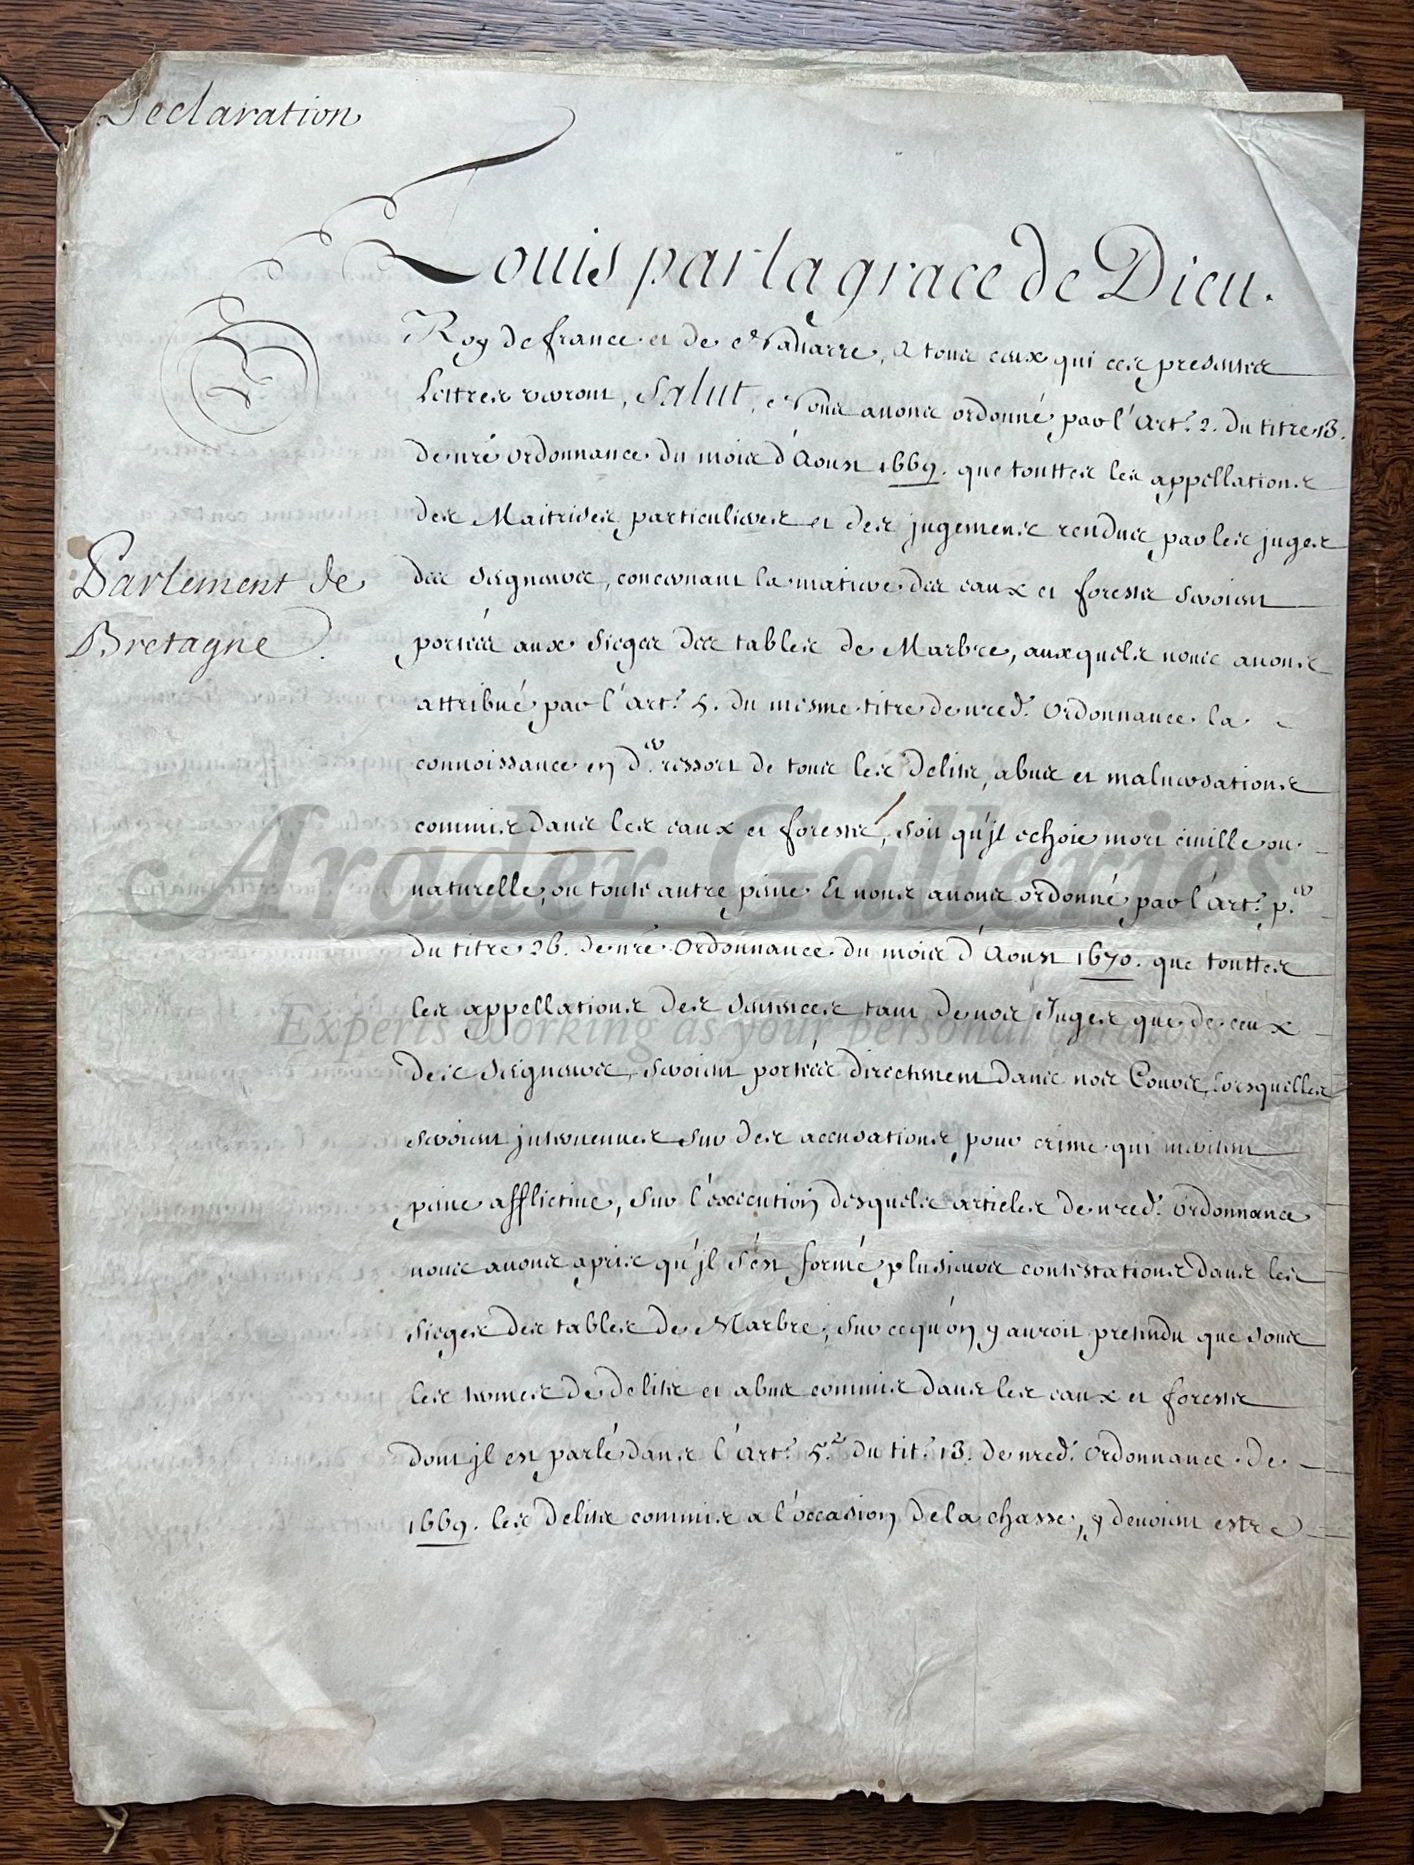 Declaration
Louis par la grace de Dieu.
Roy de france et de Navarre, A tous ceux qui ces presentes
Lettres verront, Salut, Nous avons ordonné par l'Art.e 2. du titre 13.
de nrē Ordonnance du mois d'Aoust 1669. que touttes les appellations
des Maitrises particulieres et des jugemens rendus par les juges
Parlement de
des Seigneurs, concernant la matiere des eaux et forests seroient
Bretagne.
portées aux Sieges des tables de Marbre, auxquels nous avons
attribué par l'art.e 5. du mesme titre de nred.e Ordonnance la
connoissance en d.er ressort de tous les delits, abus et malversations
commis dans les eaux et forests, soit qu'jl echoie mort civille ou
naturelle, ou toute autre peine Et nous avons ordonné par l'Art.e p.er
du titre 26. de nrē Ordonnance du mois d'Aoust 1670. que touttes
les appellations des sentences tant de nos Juges que de ceux
des Seigneurs, seroient portées directement dans nos Cours, lorsquelles
seroient jntervenues sur des accusations pour crime qui meritent
peine afflictive, sur l'execution desquels articles de nred.e Ordonnance
nous avons apris qu'jl s'est formé plusieurs contestations dans les
Sieges des tables de Marbre, sur ce qu'on y auroit pretendu que sous
les termes de delits et abus commis dans les eaux et forests
dont jl est parlé dans l'Art.e 5.e du tit.e 13. de nred.e Ordonnance de
1669. les delits commis a l'occasion de la chasse, y devoient estre
Arader Galleries
Experts working as your personal curators